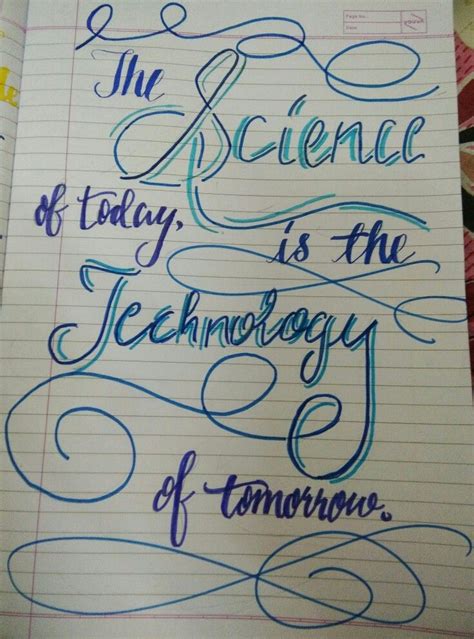 Page No.:
Date
youva
The
Science
of today,
is the
Technology
of tomorrow.